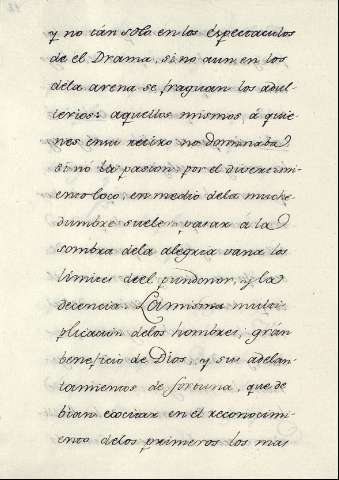 y no tán solo en los espectaculos
de el Drama, si no aun en los
dela arena se fraguan los adul-
terios: aquellos mismos, á quie-
nes en su retiro no dominaba
si nó la pasion, por el divertimi-
ento loco, en medio dela muche
dumbre suelen pasar á la
sombra dela alegria vana los
límites deel pundonor, y la
decencia. La misma multi-
plicación delos hombres, grán
beneficio de Dios, y sus adelan-
tamientos de fortuna, que de
bian excitar en el reconocimi-
ento delos primeros los mas